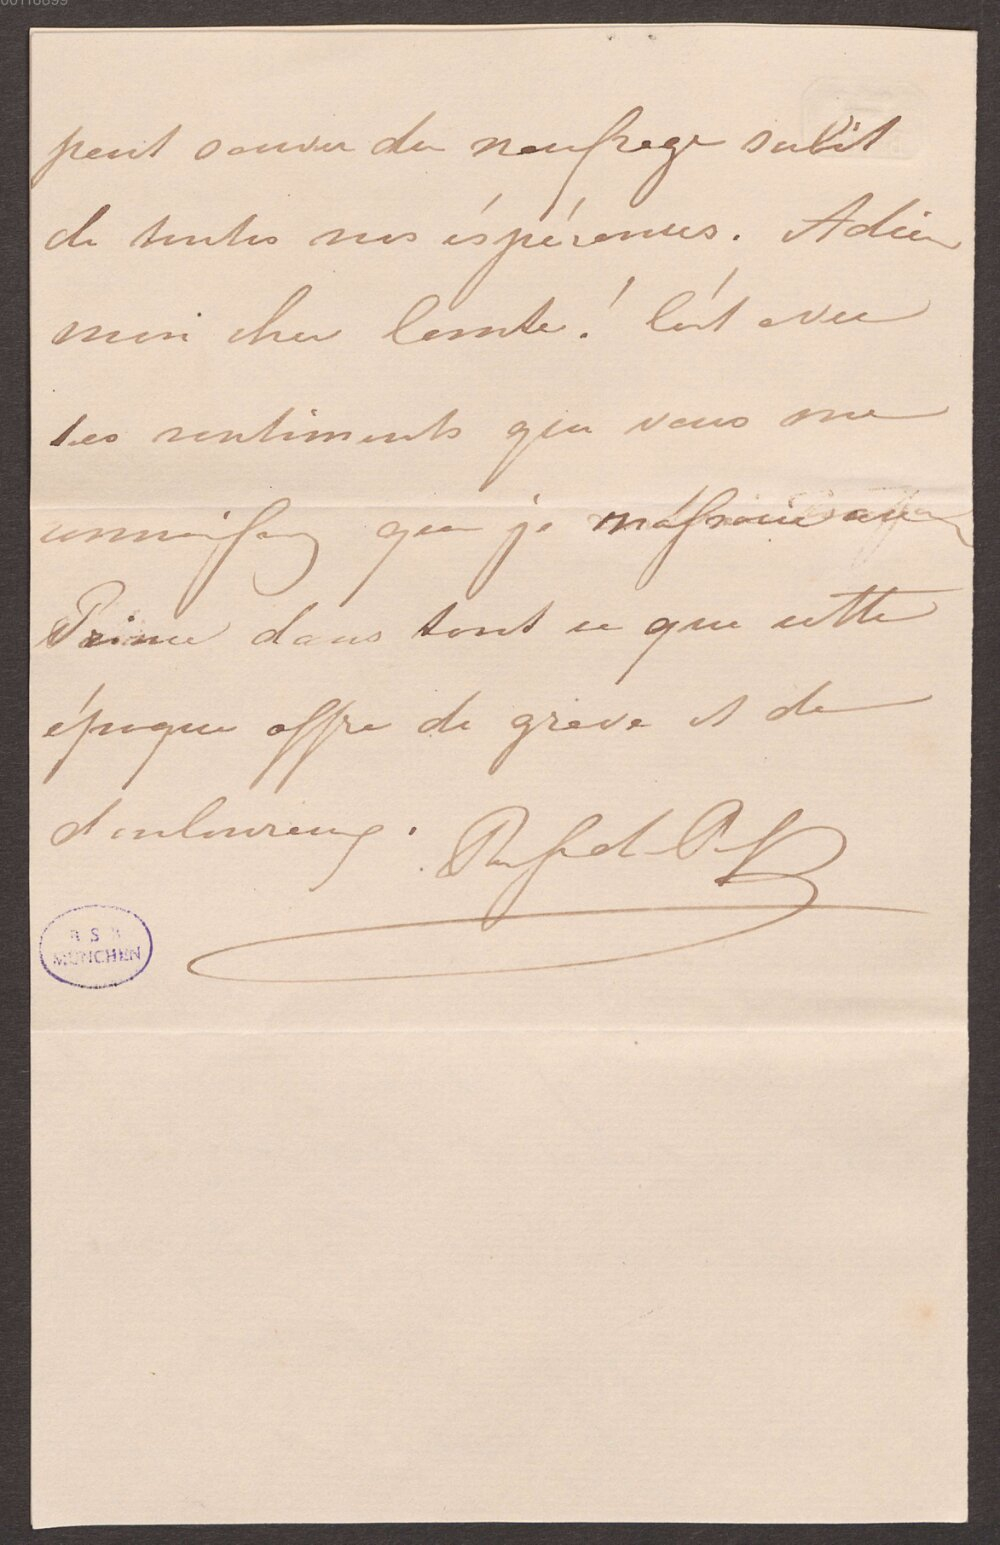 00110899
peut sauver du naufrage subit
de toutes nos éspérances. Adieu
mon cher Comte! C'est avec
les sentiments que vous me
connaissez que je m'associe au
Prince dans tout ce que cette
époque offre de grave et de
douloureux.
BSB
MÜNCHEN